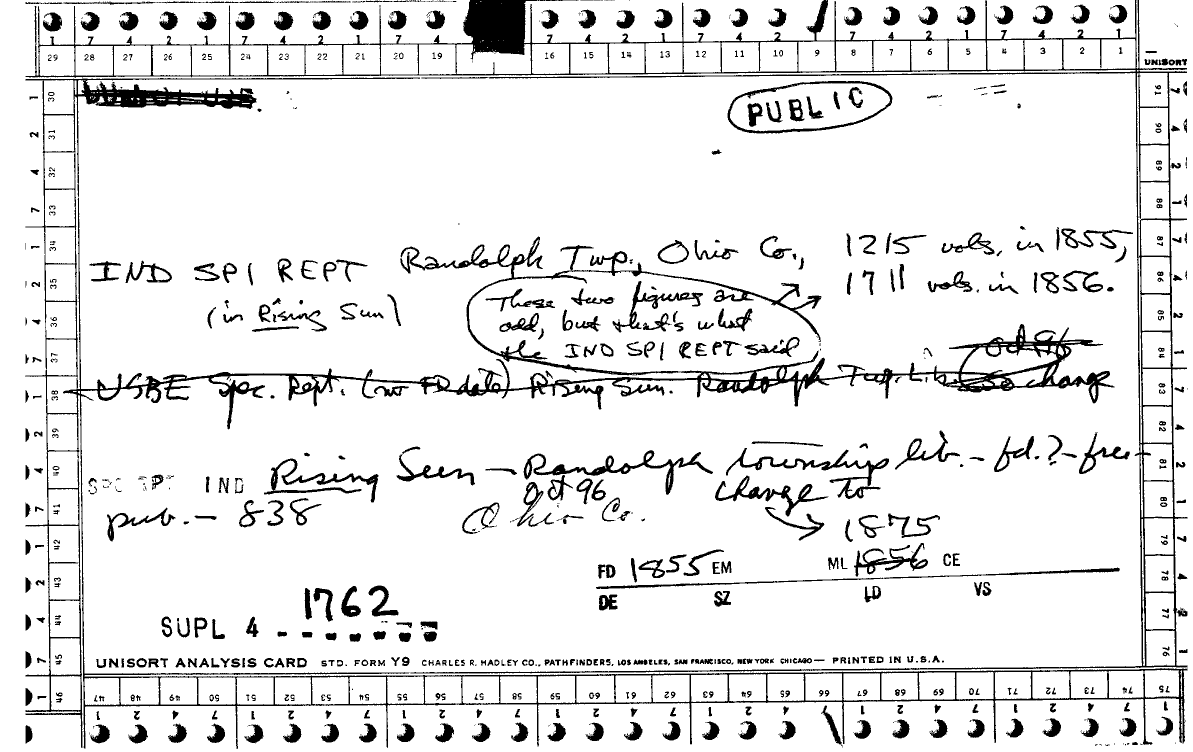 1 7 4 2 1 7 4 2 1 7 4 2 7 4 2 1 7 4 2 1 7 4 2 1 7 4 2 1
29 28 27 26 25 24 23 22 21 20 19 16 15 14 13 12 11 10 9 8 7 6 5 4 3 2 1
UNISORT
PUBLIC
IND SPI REPT Randolph Twp., Ohio Co., 1215 vols. in 1855,
1711 vols. in 1856.
(in Rising Sun)
These two figures are
odd, but that's what
the IND SPI REPT said
Oct 96
USBE Spc. Rept. (no FD date) Rising Sun. Randolph Twp. Lib. so change
SPC RPT IND Rising Sun – Randolph township lib. – fd.? – free –
Oct 96 change to
pub. – 838 Ohio Co.
1875
FD 1855 EM ML 1856 CE
DE SZ LD VS
1762
SUPL 4
UNISORT ANALYSIS CARD STD. FORM Y9 CHARLES R. HADLEY CO., PATHFINDERS, LOS ANGELES, SAN FRANCISCO, NEW YORK CHICAGO — PRINTED IN U.S.A.
47 48 49 50 51 52 53 54 55 56 57 58 59 60 61 62 63 64 65 66 67 68 69 70 71 72 73 74 75
1 2 4 7 1 2 4 7 1 2 4 7 1 2 4 7 1 2 4 7 1 2 4 7 1 2 4 7 1